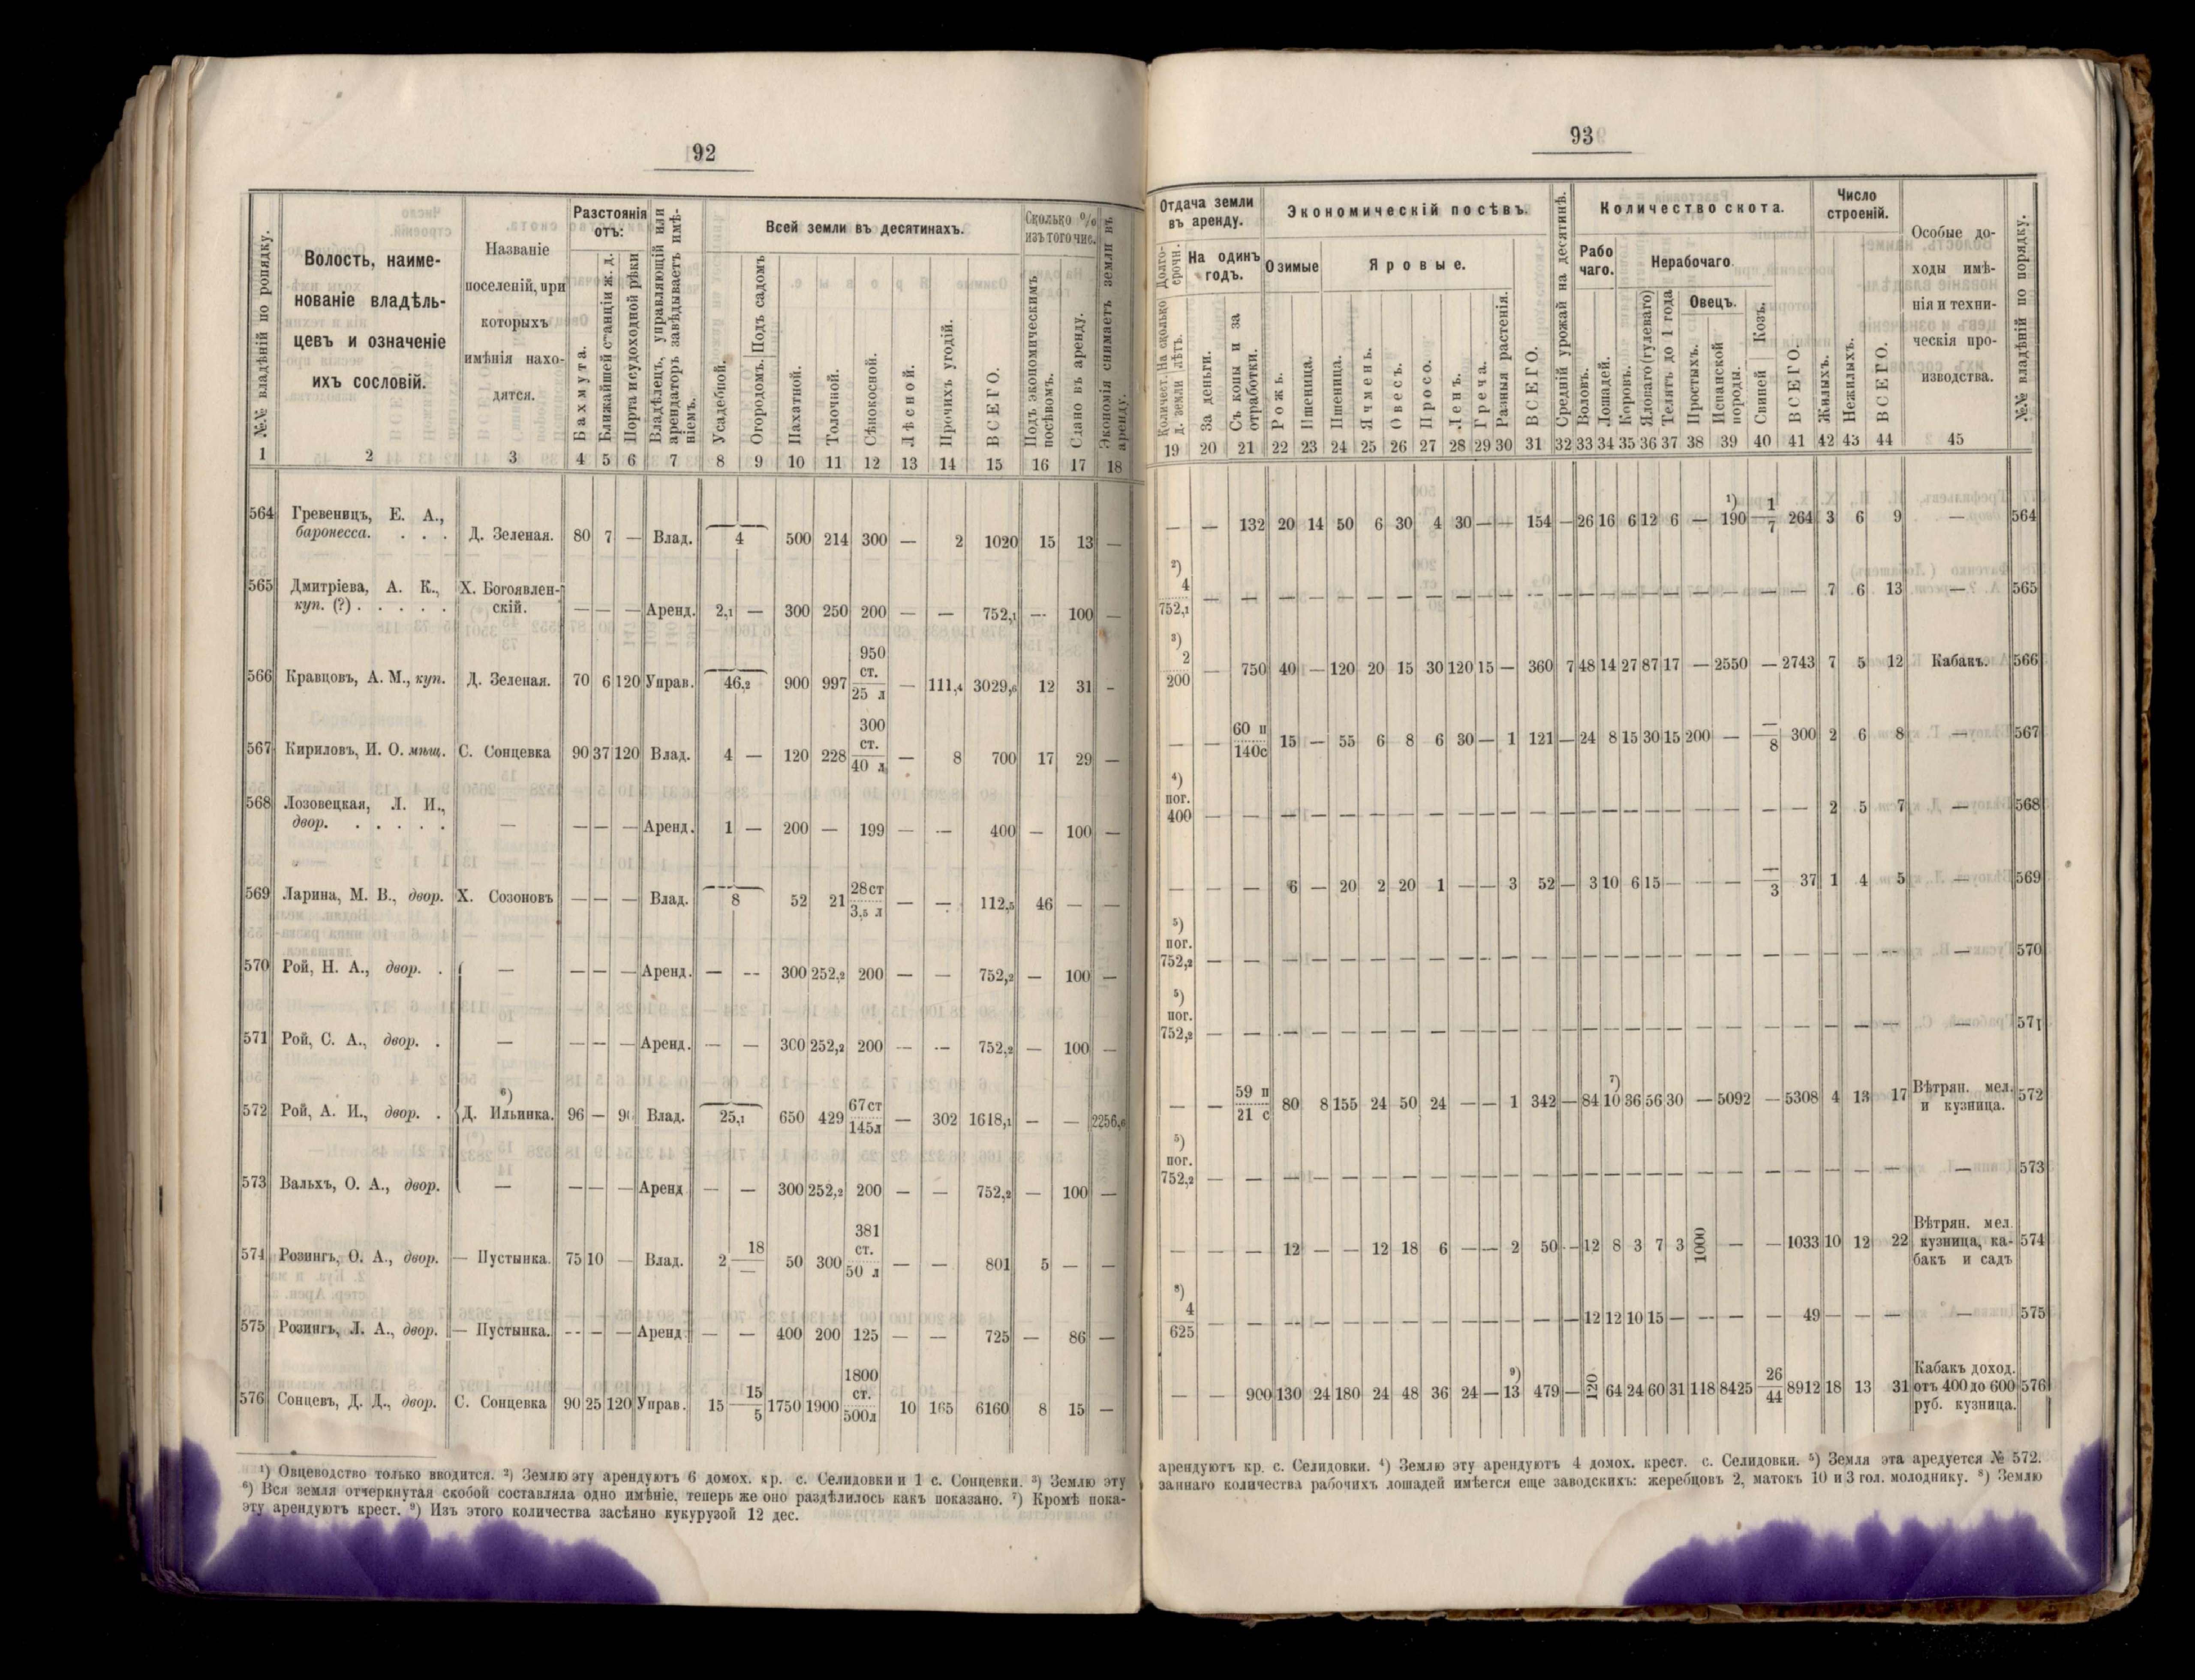 92
№№ владѣній по порядку.
Волость, наиме-
нованіе владѣль-
цевъ и означеніе
ихъ сословій.
Названіе
поселеній, при
которыхъ
имѣнія нахо-
дятся.
Разстоянія
отъ:
Бахмута.
Ближайшей станціи ж. д.
Порта и судоходной рѣки
Владѣлецъ, управляющій или
арендаторъ завѣдываетъ имѣ-
ніемъ.
Всей земли въ десятинахъ.
Усадебной.
Огородомъ. Подъ садомъ
Пахатной.
Толочной.
Сѣнокосной.
Лѣсной.
Прочихъ угодій.
ВСЕГО.
Сколько %
изъ того чис.
Подъ экономическимъ
посѣвомъ.
Сдано въ аренду.
Экономія снимаетъ земли въ
аренду.
1 2 3 4 5 6 7 8 9 10 11 12 13 14 15 16 17 18
564 Гревеницъ, Е. А.,
баронесса. . . . Д. Зеленая. 80 7 — Влад. 4 500 214 300 — 2 1020 15 13 —
565 Дмитріева, А. К., Х. Богоявлен-
куп. (?) . . . . . скій. — — — Аренд. 2,1 — 300 250 200 — — 752,1 — 100 —
950
ст.
566 Кравцовъ, А. М., куп. Д. Зеленая. 70 6 120 Управ. 46,2 900 997 25 л — 111,4 3029,6 12 31 -
300
ст.
567 Кириловъ, И. О. мѣщ. С. Сонцевка 90 37 120 Влад. 4 — 120 228 40 л — 8 700 17 29 —
568 Лозовецкая, Л. И.,
двор. . . . . . — — — — Аренд. 1 — 200 — 199 — — 400 — 100 —
569 Ларина, М. В., двор. Х. Созоновъ — — — Влад. 8 52 21 28 ст 3,5 л — — 112,5 46 — —
570 Рой, Н. А., двор. . — — — — Аренд. — — 300 252,2 200 — — 752,2 — 100 —
571 Рой, С. А., двор. . — — — — Аренд. — — 300 252,2 200 — — 752,2 — 100 —
572 Рой, А. И., двор. . ⁶) Д. Ильинка. 96 — Влад. 25,1 650 429 67 ст 145 л — 302 1618,1 — — 2256,6
573 Вальхъ, О. А., двор. — — — — Аренд — — 300 252,2 200 — — 752,2 — 100 —
381
ст.
574 Розингъ, О. А., двор. — Пустынка. 75 10 — Влад. 2 18 — 50 300 50 л — — 801 5 — —
575 Розингъ, Л. А., двор. — Пустынка. — — — Аренд. — — 400 200 125 — — 725 — 86 —
1800
ст.
576 Сонцевъ, Д. Д., двор. С. Сонцевка 90 25 120 Управ. 15 15 5 1750 1900 500л 10 165 6160 8 15 —
¹) Овцеводство только вводится. ²) Землю эту арендуютъ 6 домох. кр. с. Селидовки и 1 с. Сонцевки. ³) Землю эту
⁶) Вся земля отчеркнутая скобой составляла одно имѣніе, теперь же оно раздѣлилось какъ показано. ⁷) Кромѣ пока-
эту арендуютъ крест. ⁹) Изъ этого количества засѣяно кукурузой 12 дес.
93
Отдача земли
въ аренду.
Долго-
срочн.
Количест. На сколько
д. земли лѣтъ.
На одинъ
годъ.
За деньги.
Съ копы и за
отработки.
Экономическій посѣвъ.
Озимые
Рожь.
Пшеница.
Яровые.
Пшеница.
Ячмень.
Овесъ.
Просо.
Ленъ.
Греча.
Разныя растенія.
ВСЕГО.
Средній урожай на десятинѣ.
Количество скота.
Рабо
чаго.
Воловъ.
Лошадей.
Нерабочаго.
Коровъ.
Яловаго (гулеваго)
Телятъ до 1 года
Овецъ.
Простыхъ.
Испанской
породы.
Свиней Козъ.
ВСЕГО.
Число
строеній.
Жилыхъ.
Нежилыхъ.
ВСЕГО.
Особые до-
ходы имѣ-
нія и техни-
ческія про-
изводства.
№№ владѣній по порядку.
19 20 21 22 23 24 25 26 27 28 29 30 31 32 33 34 35 36 37 38 39 40 41 42 43 44 45
— — 132 20 14 50 6 30 4 30 — — 154 — 26 16 6 12 6 — ¹) 190 1 7 264 3 6 9 — 564
²) 4
752,1 — — — — — — — — — — — — — — — — — — — — — — 7 6 13 — 565
³) 2
200 — 750 40 — 120 20 15 30 120 15 — 360 7 48 14 27 87 17 — 2550 — 2743 7 5 12 Кабакъ. 566
— — 60 п 140с 15 — 55 6 8 6 30 — 1 121 — 24 8 15 30 15 200 — — 8 300 2 6 8 — 567
⁴)
пог.
400 — — — — — — — — — — — — — — — — — — — — — — 2 5 7 — 568
— — — 6 — 20 2 20 1 — — 3 52 — 3 10 6 15 — — — — 3 37 1 4 5 — 569
⁵)
пог.
752,2 — — — — — — — — — — — — — — — — — — — — — — — — — — 570
⁵)
пог.
752,2 — — — — — — — — — — — — — — — — — — — — — — — — — — 571
— — 59 п 21 с 80 8 155 24 50 24 — — 1 342 — 84 ⁷) 10 36 56 30 — 5092 — 5308 4 13 17 Вѣтрян. мел.
и кузница. 572
⁵)
пог.
752,2 — — — — — — — — — — — — — — — — — — — — — — — — — — 573
— — — 12 — — 12 18 6 — — 2 50 — 12 8 3 7 3 1000 — — 1033 10 12 22 Вѣтрян. мел.
кузница, ка- 574
бакъ и садъ
⁸) 4
625 — — — — — — — — — — — — — 12 12 10 15 — — — — 49 — — — — 575
— — 900 130 24 180 24 48 36 24 — ⁹) 13 479 — 120 64 24 60 31 118 8425 26 44 8912 18 13 31 Кабакъ доход.
отъ 400 до 600 576
руб. кузница.
арендуютъ кр. с. Селидовки. ⁴) Землю эту арендуютъ 4 домох. крест. с. Селидовки. ⁵) Земля эта аредуется № 572.
заннаго количества рабочихъ лошадей имѣется еще заводскихъ: жеребцовъ 2, матокъ 10 и 3 гол. молоднику. ⁸) Землю